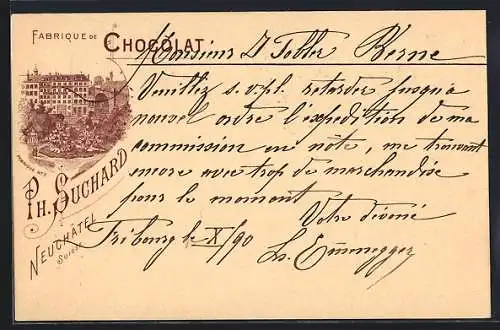 FABRIQUE DE CHOCOLAT
Monsieur D Tobler Berne
Veuillez s.v.pl. retarder jusqu'à
nouvel ordre l'expédition de ma
commission en note, me trouvant
encore avec trop de marchandise
pour le moment
Votre dévoué
Fribourg le X/90
PH. SUCHARD
NEUCHÂTEL
SUISSE